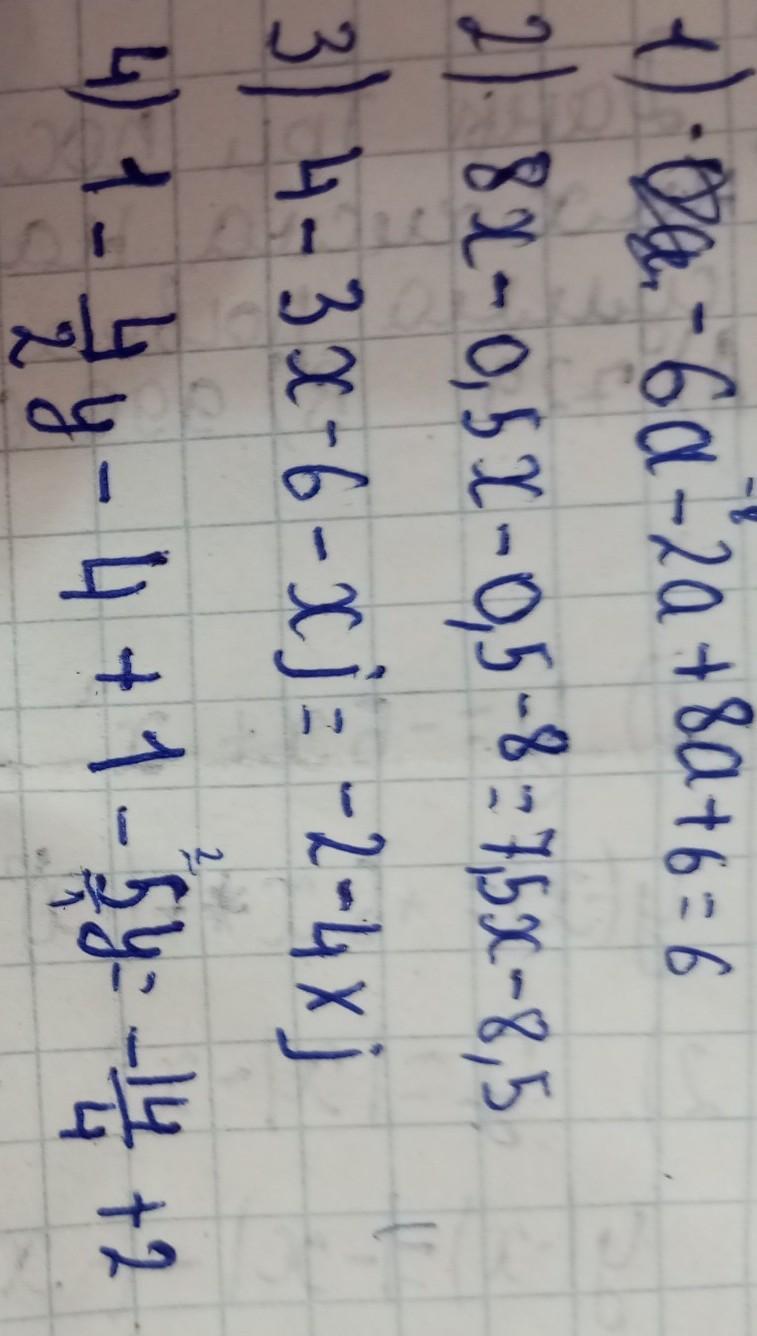 1) - 6a - 2a + 8a + 6 = 6
2) 8x - 0,5x - 0,5 - 8 = 7,5x - 8,5
3) 4 - 3x - 6 - xj = -2 - 4xj
4) 1 - 4/2 y - 4 + 1 - 5/1 y = -14/4 + 2